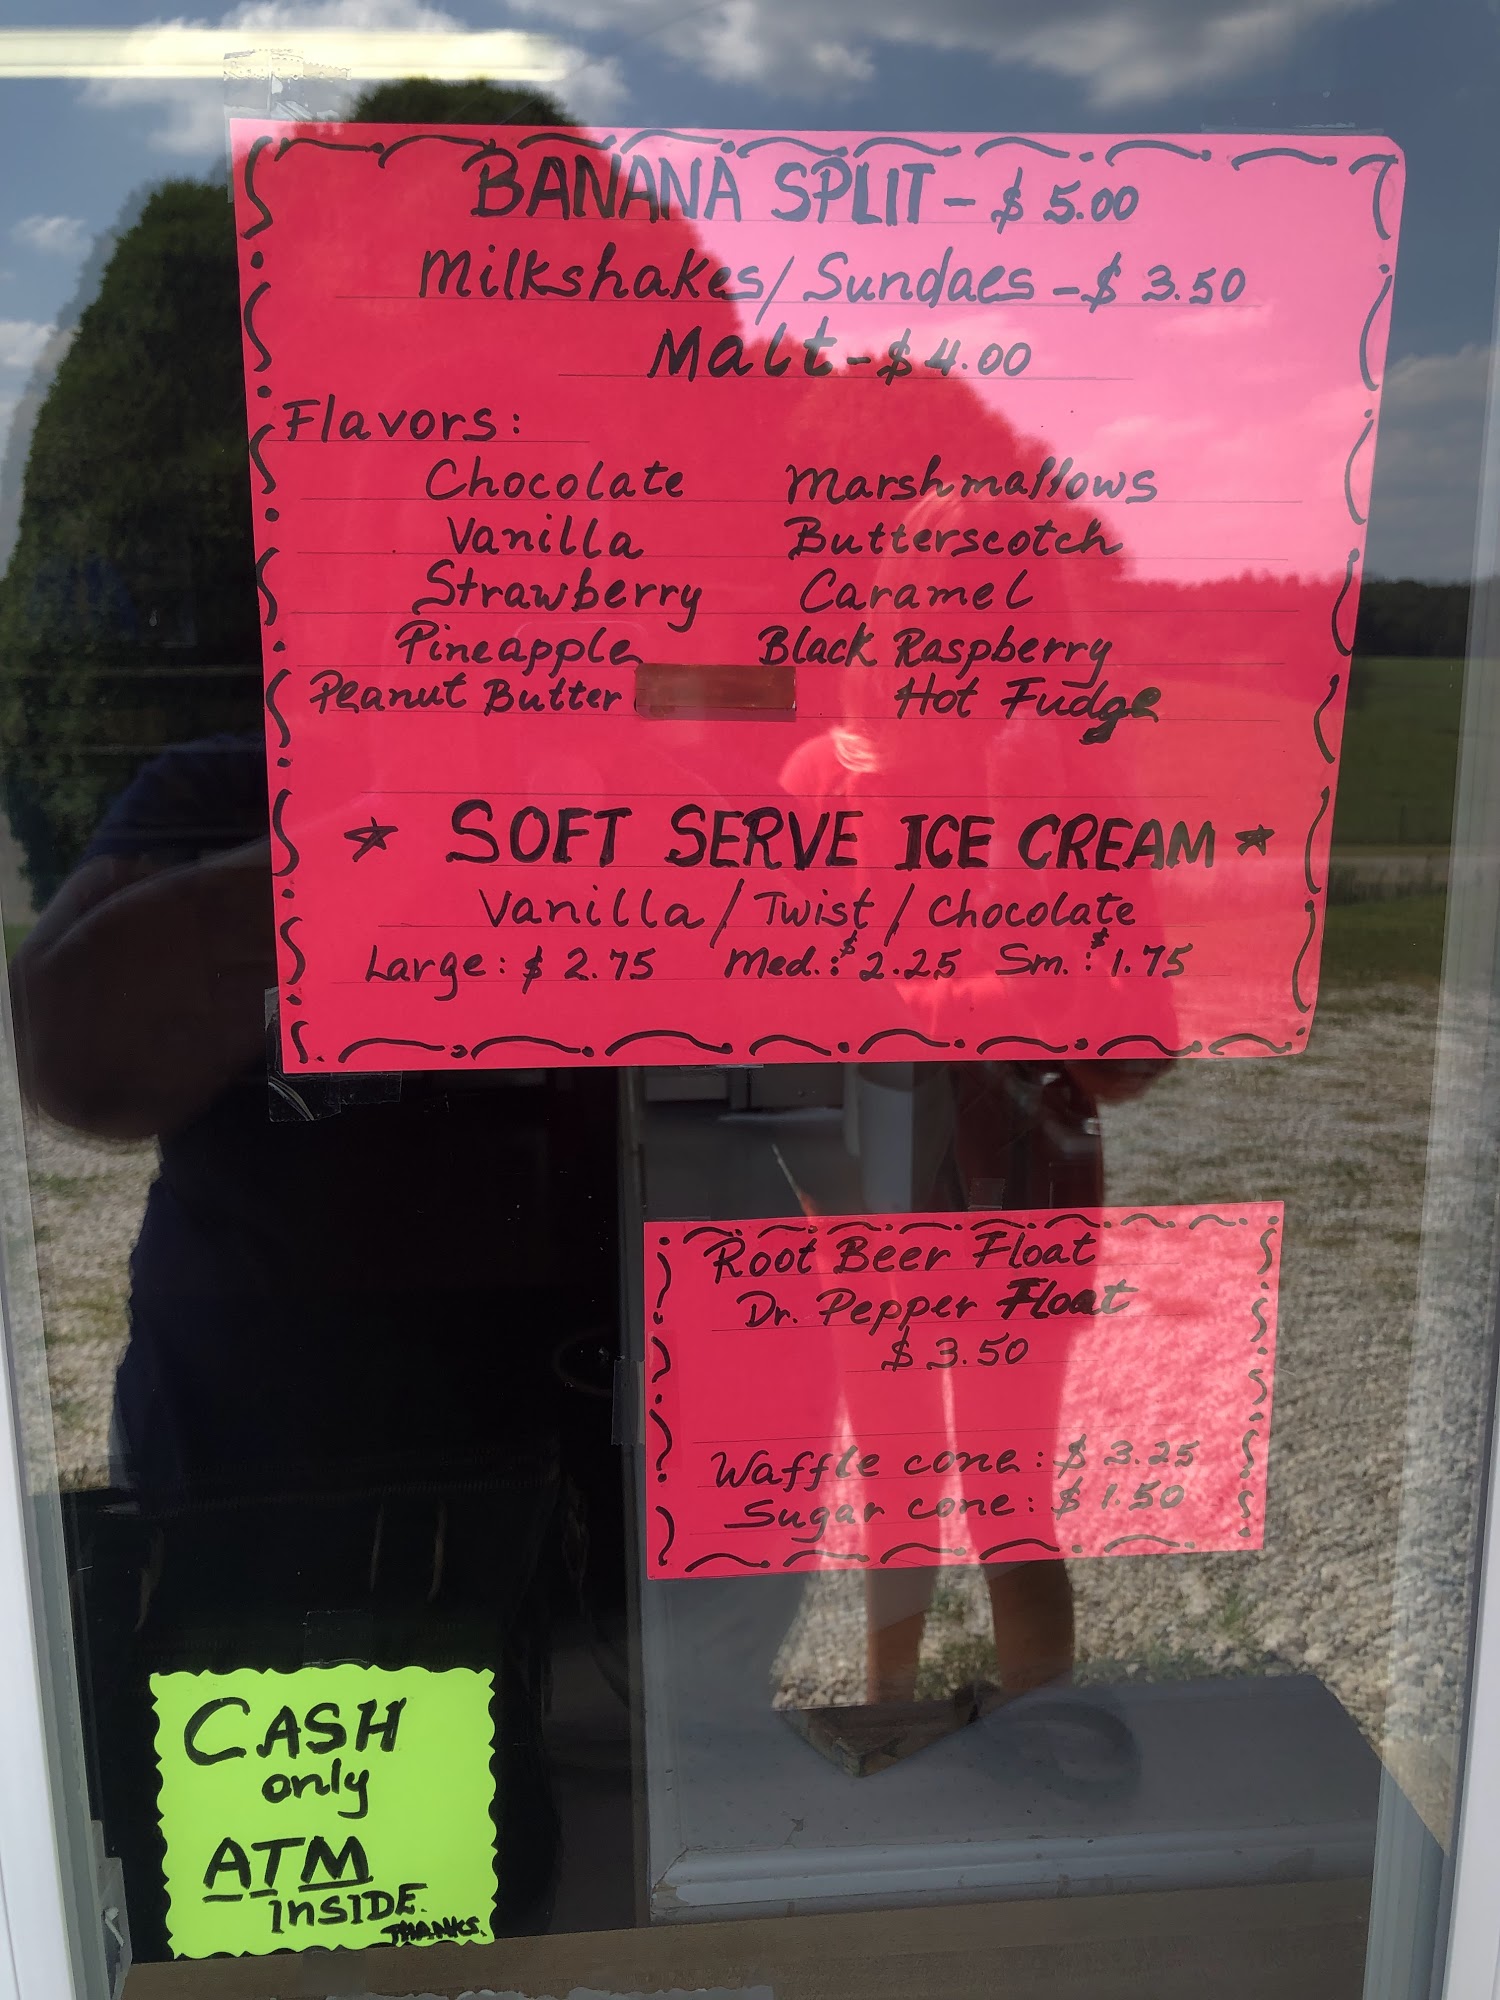 BANANA SPLIT - $ 5.00
Milkshakes/ Sundaes - $ 3.50
Malt - $ 4.00
Flavors:
Chocolate Marshmallows
Vanilla Butterscotch
Strawberry Caramel
Pineapple Black Raspberry
Peanut Butter Hot Fudge
★ SOFT SERVE ICE CREAM ★
Vanilla / Twist / Chocolate
Large: $ 2.75 Med.: $ 2.25 Sm.: $ 1.75
Root Beer Float
Dr. Pepper Float
$ 3.50
Waffle cone: $ 3.25
Sugar cone: $ 1.50
CASH
only
ATM
inSIDE.
THANKS.